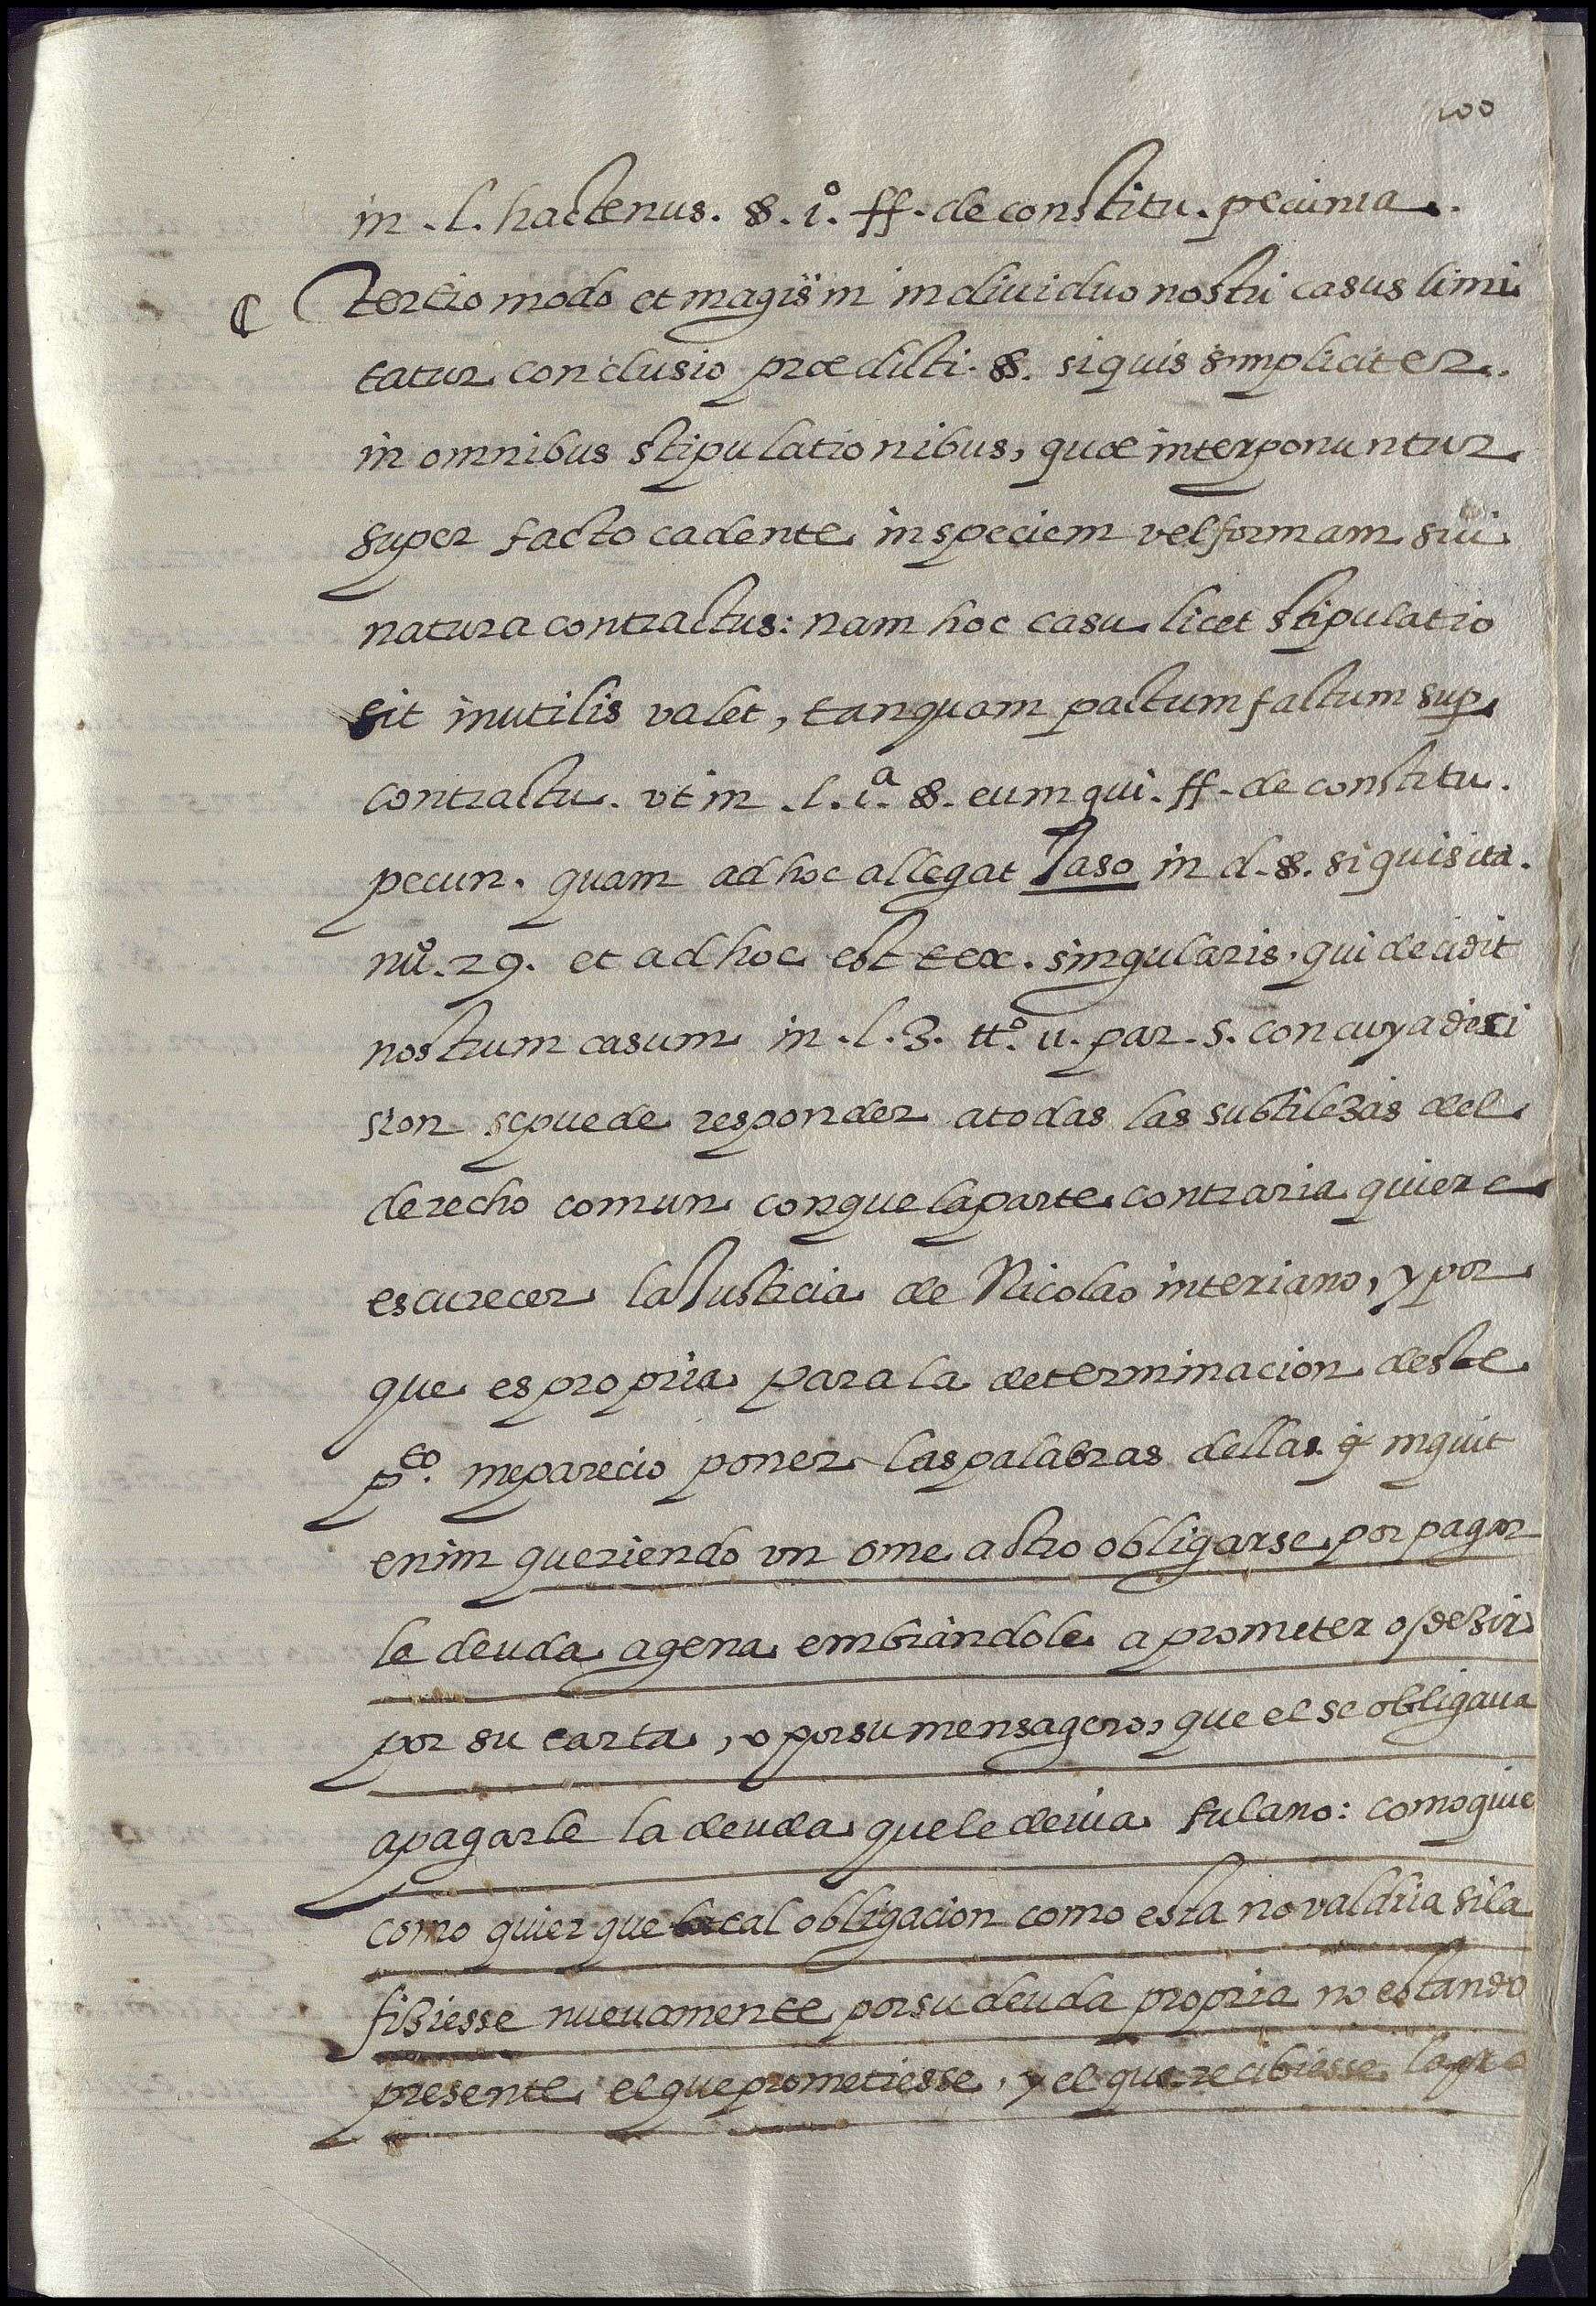 100
in .l. hactenus. §. 1º. ff. de constitu. pecunia.
¶ Tertio modo et magis in indiuiduo nostri casus limi
tatur conclusio prædicti. §. siquis simpliciter.
in omnibus stipulationibus, quæ interponuntur
super facto cadente in speciem vel formam sui
natura contractus: nam hoc casu licet stipulatio
sit inutilis valet, tanquam pactum factum sup
contractu. vt in .l. 1ª. §. eum qui. ff. de constitu.
pecun. quam ad hoc allegat Jaso in d. §. siquis ita.
nuº. 29. et ad hoc est tex. singularis. qui decidit
nostrum casum in .l. 3. ttº. 11. par. 5. con cuya deci
sion se puede responder a todas las subtilezas del
derecho comun con que la parte contraria quiere
escurecer la Justicia de Nicolao interiano, y por
que es propria para la determinacion deste
pto. me parecio poner las palabras della. q inquit
enim queriendo vn ome a otro obligarse por pagar
le deuda agena embiandole a prometer o dezir
por su carta, o por su mensagero, que el se obligaua
a pagarle la deuda que le deuia fulano: como quie
como quier que tal obligacion como esta no valdria si la
fiziesse nueuamente por su deuda propria no estando
presente el que prometiesse, y el que recibiesse la pro